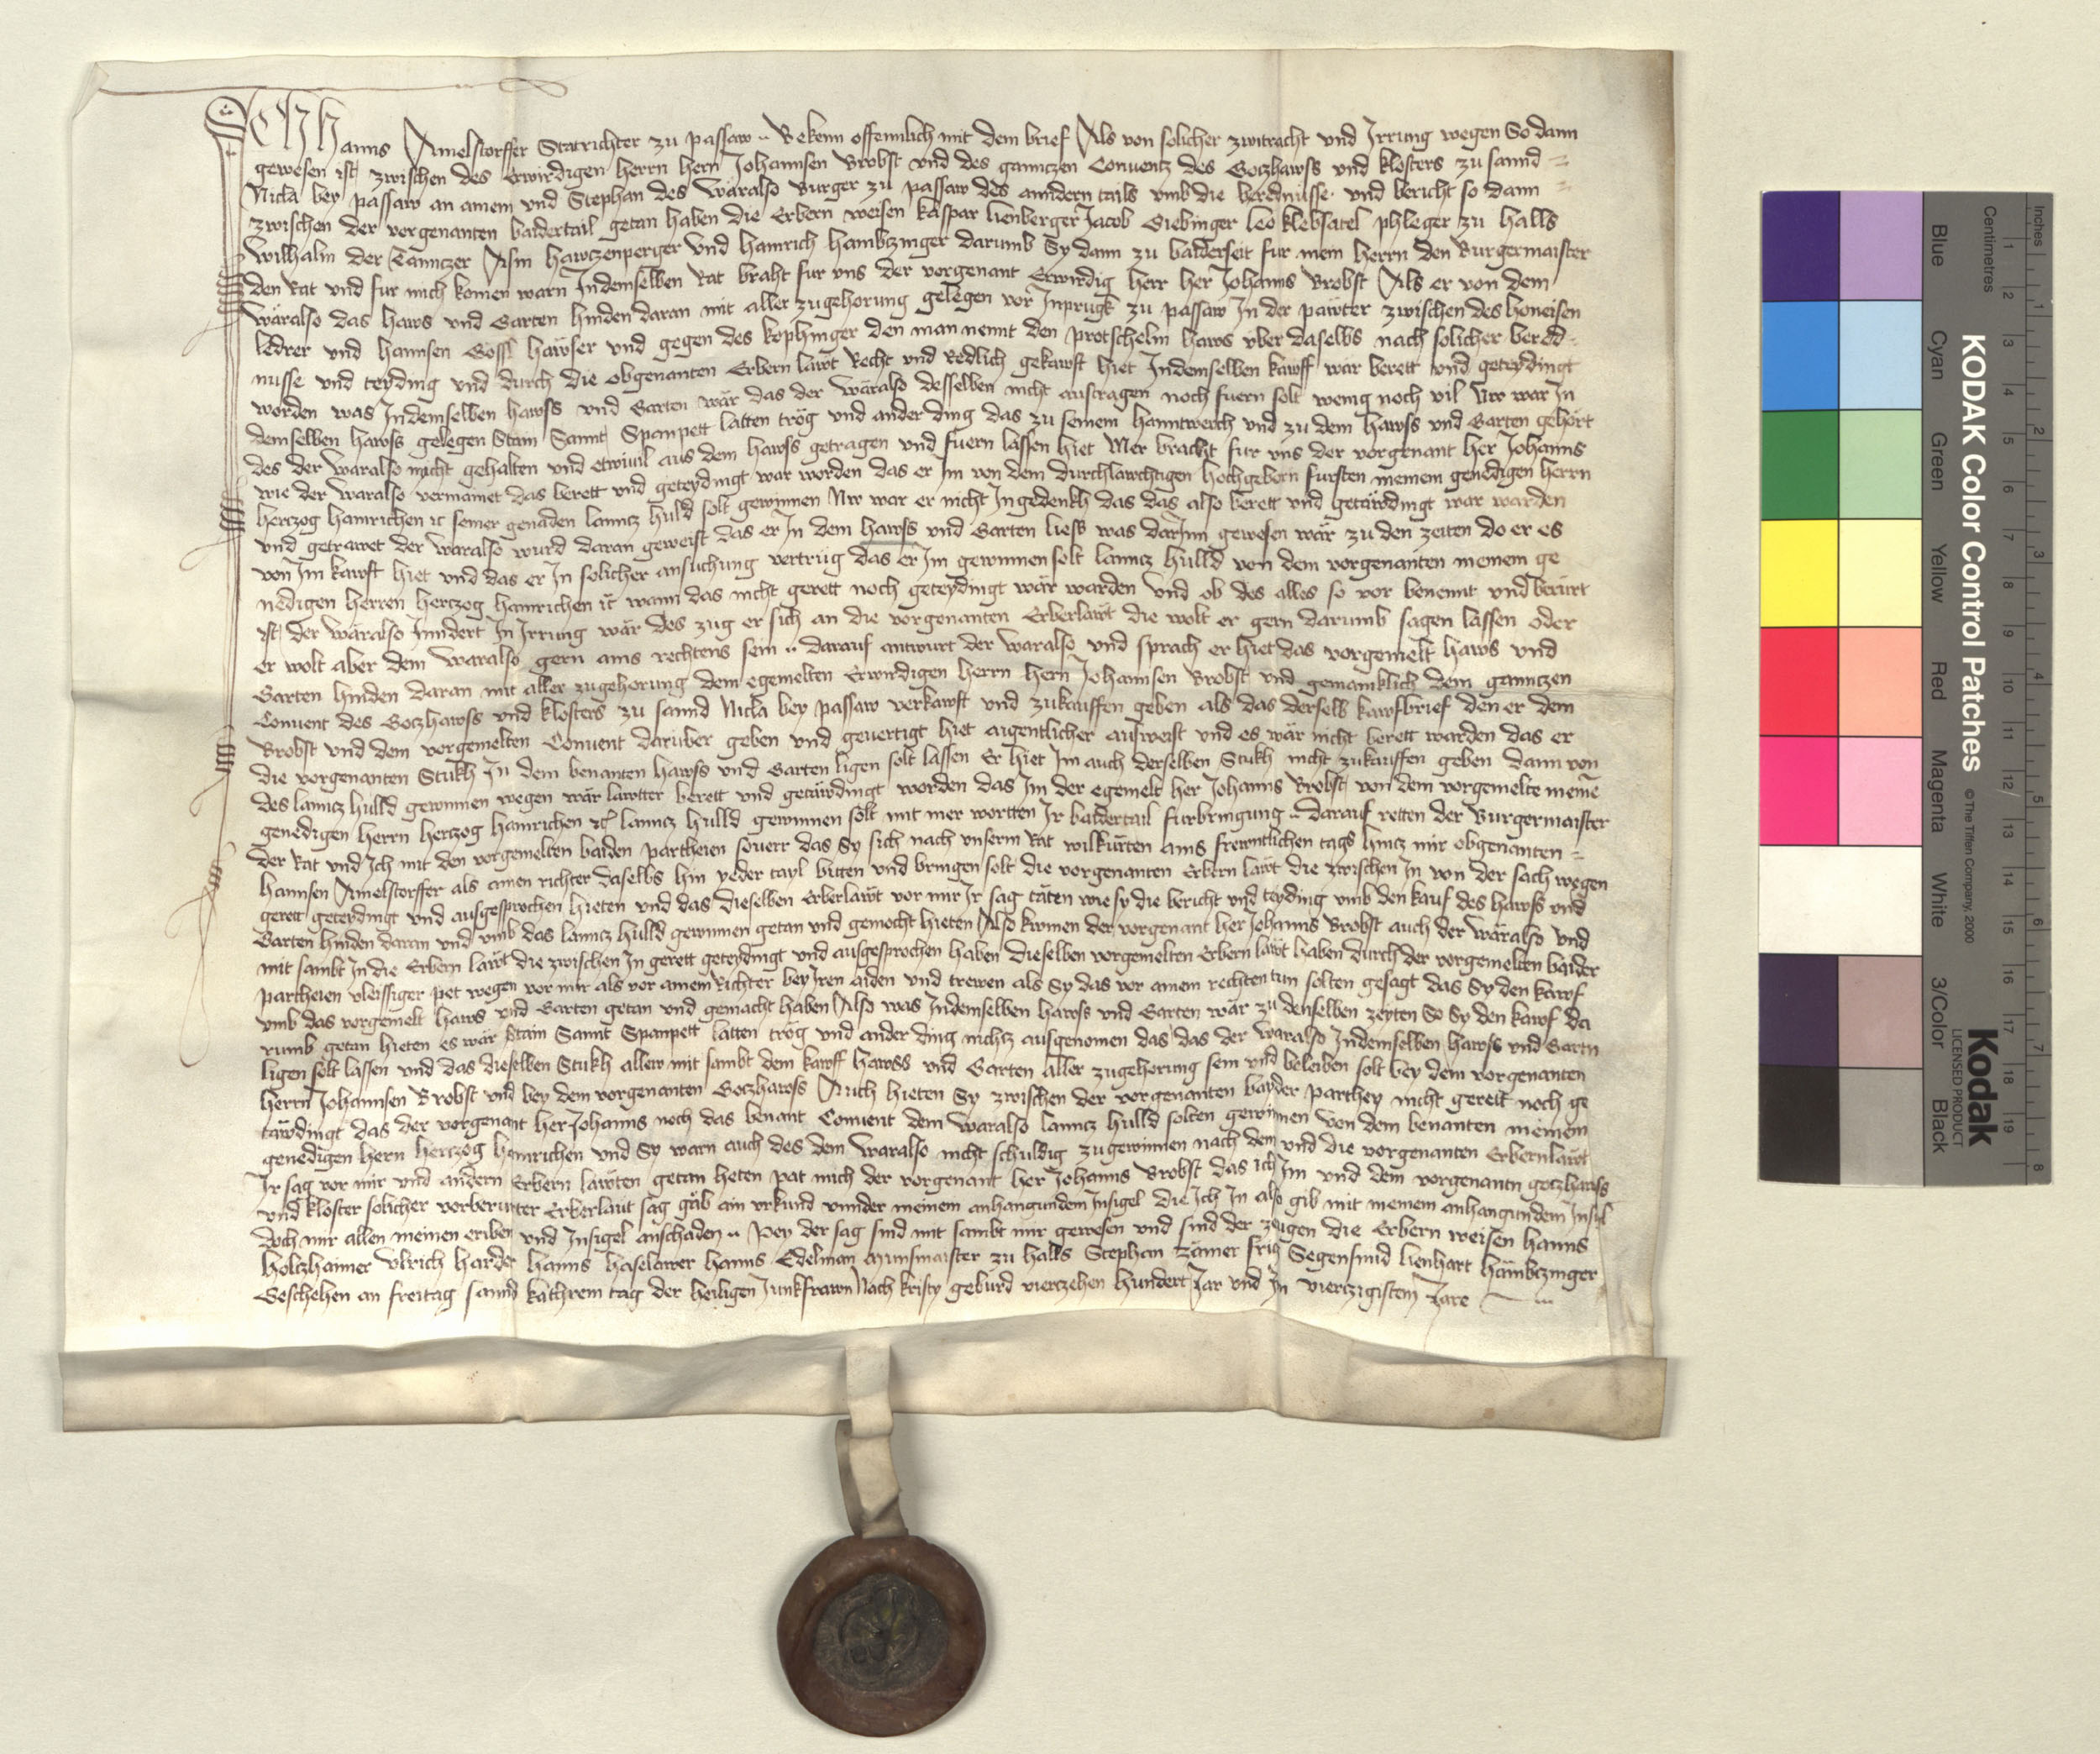 Ich Hanns Amelstorffer Statrichter zu passaw Bekenn offennlich mit dem brief Als von solicher zwitracht und Irrung wegen So dann
gewesen ist zwischen des Erwirdigen herrn hern Johannsen Brobst vnd des ganntzen Conventz des Gotzhawss und klosters zu sannd
Nicla bey passaw an ainem und Stephan des Wäralso Burger zu passaw des anndern tails vmb die berednüsse und bericht so dann
zwischen der vorgenanten baidertail getan haben die Erbern weisen kaspar lienberger Jacob Giebinger leo klebsatel phleger zu halls
Wilhalm der Tänntzer Asm hawczenperger und hainrich hambtzinger darumb Sy dann zu baiderseit fur mein herrn den Burgermaister
den Rat und fur mich komen warn Indemselben Rat braht fur vns der vorgenant Erwirdig herr her Johanns Brobst Als er von dem
Wäralso das haws und Garten hinden daran mit aller zugehorung gelegen vor Innprugk zu passaw In der päwter zwischen des honeisen
ledrer und hannsen Gossl häwser und gegen des kophinger den man nennt den protschelm haws vber daselbs nach solicher bered
nusse und teyding und durch die obgenanten Erbern läwt Recht und Redlich gekawft hiet Indemselben kawff wär berett und geteydingt
worden was Indemselben hawss und Garten wär das der wäralso desselben nicht austragen noch fuern solt wenig noch vil Nw wär In
demselben hawss gelegen Stain Sannt Spanpett latten trög und ander ding das zu seinem hanntwerch und zu dem hawss und Garten gehört
des der waralso nicht gehalten und etwiuil aus dem hawss getragen und fuern lassen hiet Mer bracht fur vns der vorgenant her Johanns
wie der Waralso vermainet das berett und geteydingt war worden das er im von dem durchlawchtigen hochgeborn fursten meinem genedigen herrn
hertzog hainrichen etc seiner genaden lanntz huld solt gewinnen Nw war er nicht Ingedenkh das das also berett und getäwdingt war warden
und getrawet der Waralso wurd daran geweist das er In dem hawss und Garten liess was darInn gewesen wär zu den zeiten do er es
von Im kawft hiet und das er In solicher ansuchung vertrüg das er Im gewinnen solt lanntz hulld von dem vorgenanten meinem ge
nedigen herren hertzog hainrichen etc wann das nicht gerett noch geteydingt wär warden und ob des alles so vor benennt und berürt
ist der wäralso Inndert In Irrung wär des zug er sich an die vorgenanten Erberläwt die wolt er gern darumb sagen lassen oder
er wolt aber dem Waralso gern ains rechtens sein darauf antwurt der waralso und sprach er hiet das vorgemelt haws und
Garten hinden daran mit aller zugehorung dem egemelten Erwirdigen herrn hern Johannsen Brobst und gemainklich dem ganntzen
Convent des Gotzhawss und klosters zu sannd Nicla bey passaw verkawft und zukauffen geben als das derselb kawfbrief den er dem
Brobst und dem vorgemelten Convent daruber geben und geuertigt hiet aigentlicher ausweist und es wär nicht berett warden das er
die vorgenanten Stukh In dem benanten hawss und Garten ligen solt lassen Er hiet Im auch derselben Stukh nicht zukauffen geben dann von
des lanntz hulld gewinnen wegen wär lawtter berett und getäwdingt worden das Im der egemelt her Johanns Brobst von dem vorgemelte meinē
genedigen herrn hertzog hainrichen etc lanntz hulld gewinnen solt mit mer wortten Ir baidertail furbringung darauf retten der Burgermaister
der Rat und Ich mit den vorgemelten baiden partheien souerr das Sy sich nach vnserm Rat wilkurten ains frewntlichen tags hintz mir obgenanten
hannsen Amelstorffer als ainen richter daselbs hin yeder tayl bitten und bringen solt die vorgenanten Erbern läwt die zwischen In von der sach wegen
gerett geteydingt und ausgesprochen hieten und das dieselben Erberläwt vor mir Ir sag täten wie sy die bericht und teyding vmb den kauf des hawss und
Garten hinden daran und vmb das lanntz hulld gewinnen getan und gemacht hieten Also komen der vorgenant her Johanns Brobst auch der wäralso und
mit sambt In die Erbern läwt die zwischen In gerett geteydingt und ausgesprochen haben dieselben vorgemelten Erbern läwt haben durch der vorgemelten baider
partheien vleissiger pet wegen vor mir als vor ainem Richter bey Iren aiden und trewen als Sy das vor ainem rechten tun solten gesagt das Sy den kawf
vmb das vorgemelt haws und Garten getan und gemacht haben Also was Indemselben hawss und Garten wär zu denselben zeyten So Sy den kawf da
rumb getan hieten es wär Stain Sannt Spanpett latten trög und ander ding nichtz ausgenomen das das der waralso Indemselben hawss und Gartn
ligen solt lassen und das dieselben Stukh allew mit sambt dem kawff hawss und Garten aller zugehorung sein und beleiben solt bey dem vorgenanten
herrn Johannsen Brobst und bey dem vorgenanten Gotzhawss Auch hieten Sy zwischen der vorgenanten bayder parthey nicht gerett noch ge
täwdingt das der vorgenant her Johanns noch das benant Convent dem waralso lanntz hulld solten gewinnen von dem benanten meinem
genedigen hern hertzog hainrichen und Sy warn auch des dem Waralso nicht schuldig zugewinnen nach dem und die vorgenanten Erbernläwt
Ir sag vor mir und andern Erbern läwten getan heten pat mich der vorgenant her Johanns Brobst das ich Im und dem vorgenantn gotzhawss
und kloster solicher vorberurter Erberläut sag gäb ain vrkund vnnder meinem anhangundem Insigel die Ich In also gib mit meinem anhangundem Insigl
doch mir allen meinen eriben und Insigel anschaden Pey der sag sind mit sambt mir gewesen und sind der zewgen die Erbern weisen hanns
holtzhaimer Vlrich harder hanns haselawer hanns Edelman Munsmaister zu halls Stephan zämer friq Segensmid lienhart hämbtzinger
Geschehen an freitag sannd kathrein tag der heiligen Junkfrawn Nach kristy geburd viertzehen hundert Jar und In viertzigistem Jare
KODAK Color Control Patches
© The Tiffen Company, 2000
Kodak
LICENSED PRODUCT
Blue Cyan Green Yellow Red Magenta White 3/Color Black
Inches 1 2 3 4 5 6 7 8
Centimetres 1 2 3 4 5 6 7 8 9 10 11 12 13 14 15 16 17 18 19